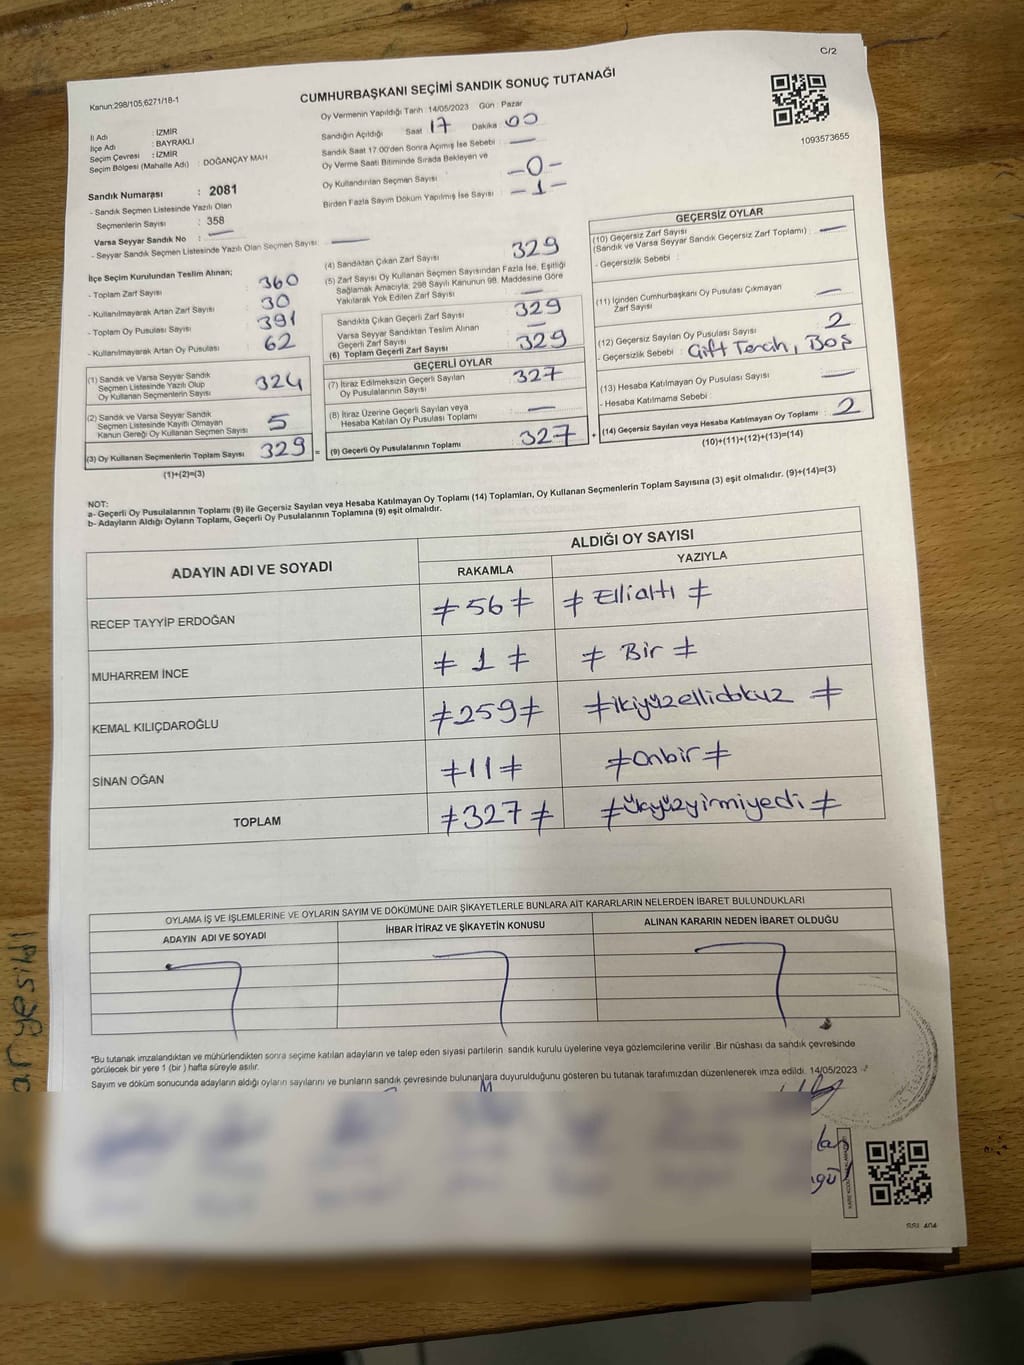 C/2
Kanun:298/105,6271/18-1
CUMHURBAŞKANI SEÇİMİ SANDIK SONUÇ TUTANAĞI
1093573655
İl Adı : İZMİR
İlçe Adı : BAYRAKLI
Seçim Çevresi : İZMİR
Seçim Bölgesi (Mahalle Adı) : DOĞANÇAY MAH
Sandık Numarası : 2081
- Sandık Seçmen Listesinde Yazılı Olan
Seçmenlerin Sayısı : 358
Varsa Seyyar Sandık No : —
- Seyyar Sandık Seçmen Listesinde Yazılı Olan Seçmen Sayısı : —
Oy Vermenin Yapıldığı Tarih : 14/05/2023 Gün : Pazar
Sandığın Açıldığı Saat 17 Dakika 00
Sandık Saat 17.00'den Sonra Açılmış İse Sebebi : —
Oy Verme Saati Bitiminde Sırada Bekleyen ve
Oy Kullandırılan Seçmen Sayısı : -0-
Birden Fazla Sayım Döküm Yapılmış İse Sayısı : -1-
İlçe Seçim Kurulundan Teslim Alınan;
- Toplam Zarf Sayısı : 360
- Kullanılmayarak Artan Zarf Sayısı : 30
- Toplam Oy Pusulası Sayısı : 391
- Kullanılmayarak Artan Oy Pusulası : 62
(1) Sandık ve Varsa Seyyar Sandık
Seçmen Listesinde Yazılı Olup
Oy Kullanan Seçmenlerin Sayısı : 324
(2) Sandık ve Varsa Seyyar Sandık
Seçmen Listesinde Kayıtlı Olmayan
Kanun Gereği Oy Kullanan Seçmen Sayısı : 5
(3) Oy Kullanan Seçmenlerin Toplam Sayısı : 329
(1)+(2)=(3)
(4) Sandıktan Çıkan Zarf Sayısı : 329
(5) Zarf Sayısı Oy Kullanan Seçmen Sayısından Fazla İse, Eşitliği
Sağlamak Amacıyla, 298 Sayılı Kanunun 98. Maddesine Göre
Yakılarak Yok Edilen Zarf Sayısı : —
Sandıkta Çıkan Geçerli Zarf Sayısı : 329
Varsa Seyyar Sandıktan Teslim Alınan
Geçerli Zarf Sayısı : —
(6) Toplam Geçerli Zarf Sayısı : 329
GEÇERLİ OYLAR
(7) İtiraz Edilmeksizin Geçerli Sayılan
Oy Pusulalarının Sayısı : 327
(8) İtiraz Üzerine Geçerli Sayılan veya
Hesaba Katılan Oy Pusulası Toplamı : —
(9) Geçerli Oy Pusulalarının Toplamı : 327
GEÇERSİZ OYLAR
(10) Geçersiz Zarf Sayısı
(Sandık ve Varsa Seyyar Sandık Geçersiz Zarf Toplamı) : —
- Geçersizlik Sebebi :
(11) İçinden Cumhurbaşkanı Oy Pusulası Çıkmayan
Zarf Sayısı : —
(12) Geçersiz Sayılan Oy Pusulası Sayısı : 2
- Geçersizlik Sebebi : Çift Tercih, Boş
(13) Hesaba Katılmayan Oy Pusulası Sayısı : —
- Hesaba Katılmama Sebebi :
(14) Geçersiz Sayılan veya Hesaba Katılmayan Oy Toplamı : 2
(10)+(11)+(12)+(13)=(14)
NOT:
a- Geçerli Oy Pusulalarının Toplamı (9) ile Geçersiz Sayılan veya Hesaba Katılmayan Oy Toplamı (14) Toplamları, Oy Kullanan Seçmenlerin Toplam Sayısına (3) eşit olmalıdır. (9)+(14)=(3)
b- Adayların Aldığı Oyların Toplamı, Geçerli Oy Pusulalarının Toplamına (9) eşit olmalıdır.
ADAYIN ADI VE SOYADI ALDIĞI OY SAYISI
RAKAMLA YAZIYLA
RECEP TAYYİP ERDOĞAN ≠ 56 ≠ ≠ Ellialtı ≠
MUHARREM İNCE ≠ 1 ≠ ≠ Bir ≠
KEMAL KILIÇDAROĞLU ≠ 259 ≠ ≠ ikiyüzellidokuz ≠
SİNAN OĞAN ≠ 11 ≠ ≠ Onbir ≠
TOPLAM ≠ 327 ≠ ≠ üçyüzyirmiyedi ≠
OYLAMA İŞ VE İŞLEMLERİNE VE OYLARIN SAYIM VE DÖKÜMÜNE DAİR ŞİKAYETLERLE BUNLARA AİT KARARLARIN NELERDEN İBARET BULUNDUKLARI
ADAYIN ADI VE SOYADI İHBAR İTİRAZ VE ŞİKAYETİN KONUSU ALINAN KARARIN NEDEN İBARET OLDUĞU
*Bu tutanak imzalandıktan ve mühürlendikten sonra seçime katılan adayların ve talep eden siyasi partilerin sandık kurulu üyelerine veya gözlemcilerine verilir .Bir nüshası da sandık çevresinde
görülecek bir yere 1 (bir ) hafta süreyle asılır.
Sayım ve döküm sonucunda adayların aldığı oyların sayılarını ve bunların sandık çevresinde bulunanlara duyurulduğunu gösteren bu tutanak tarafımızdan düzenlenerek imza edildi. 14/05/2023